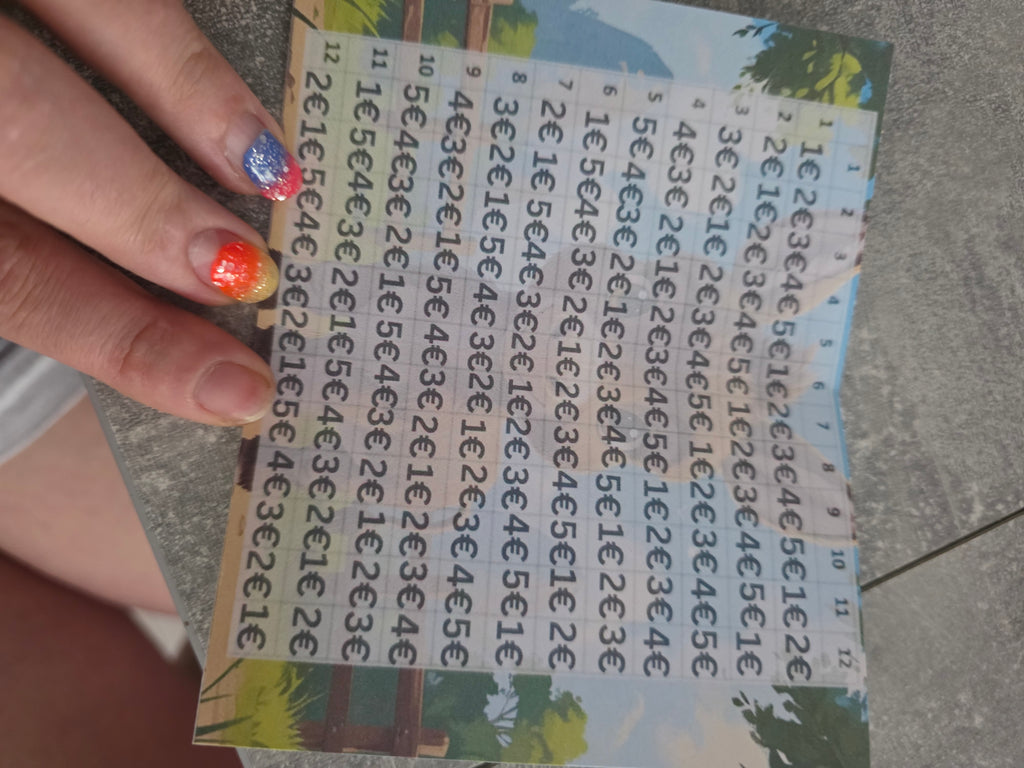 1 2 3 4 5 6 7 8 9 10 11 12
1 1€ 2€ 3€ 4€ 5€ 1€ 2€ 3€ 4€ 5€ 1€ 2€
2 2€ 1€ 2€ 3€ 4€ 5€ 1€ 2€ 3€ 4€ 5€ 1€
3 3€ 2€ 1€ 2€ 3€ 4€ 5€ 1€ 2€ 3€ 4€ 5€
4 4€ 3€ 2€ 1€ 2€ 3€ 4€ 5€ 1€ 2€ 3€ 4€
5 5€ 4€ 3€ 2€ 1€ 2€ 3€ 4€ 5€ 1€ 2€ 3€
6 1€ 5€ 4€ 3€ 2€ 1€ 2€ 3€ 4€ 5€ 1€ 2€
7 2€ 1€ 5€ 4€ 3€ 2€ 1€ 2€ 3€ 4€ 5€ 1€
8 3€ 2€ 1€ 5€ 4€ 3€ 2€ 1€ 2€ 3€ 4€ 5€
9 4€ 3€ 2€ 1€ 5€ 4€ 3€ 2€ 1€ 2€ 3€ 4€
10 5€ 4€ 3€ 2€ 1€ 5€ 4€ 3€ 2€ 1€ 2€ 3€
11 1€ 5€ 4€ 3€ 2€ 1€ 5€ 4€ 3€ 2€ 1€ 2€
12 2€ 1€ 5€ 4€ 3€ 2€ 1€ 5€ 4€ 3€ 2€ 1€